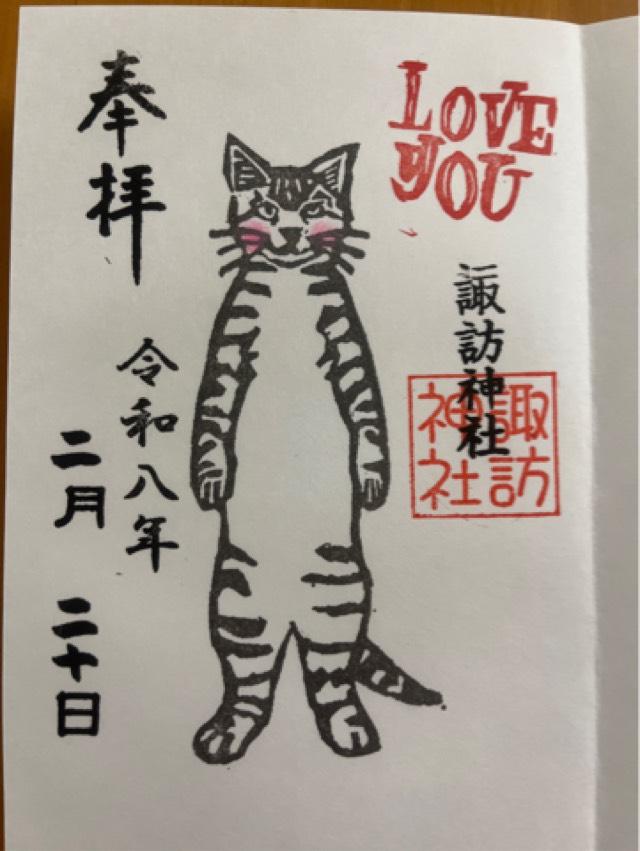 LOVE
YOU
諏訪神社
諏訪
神社
奉拝
令和八年
二月 二十日